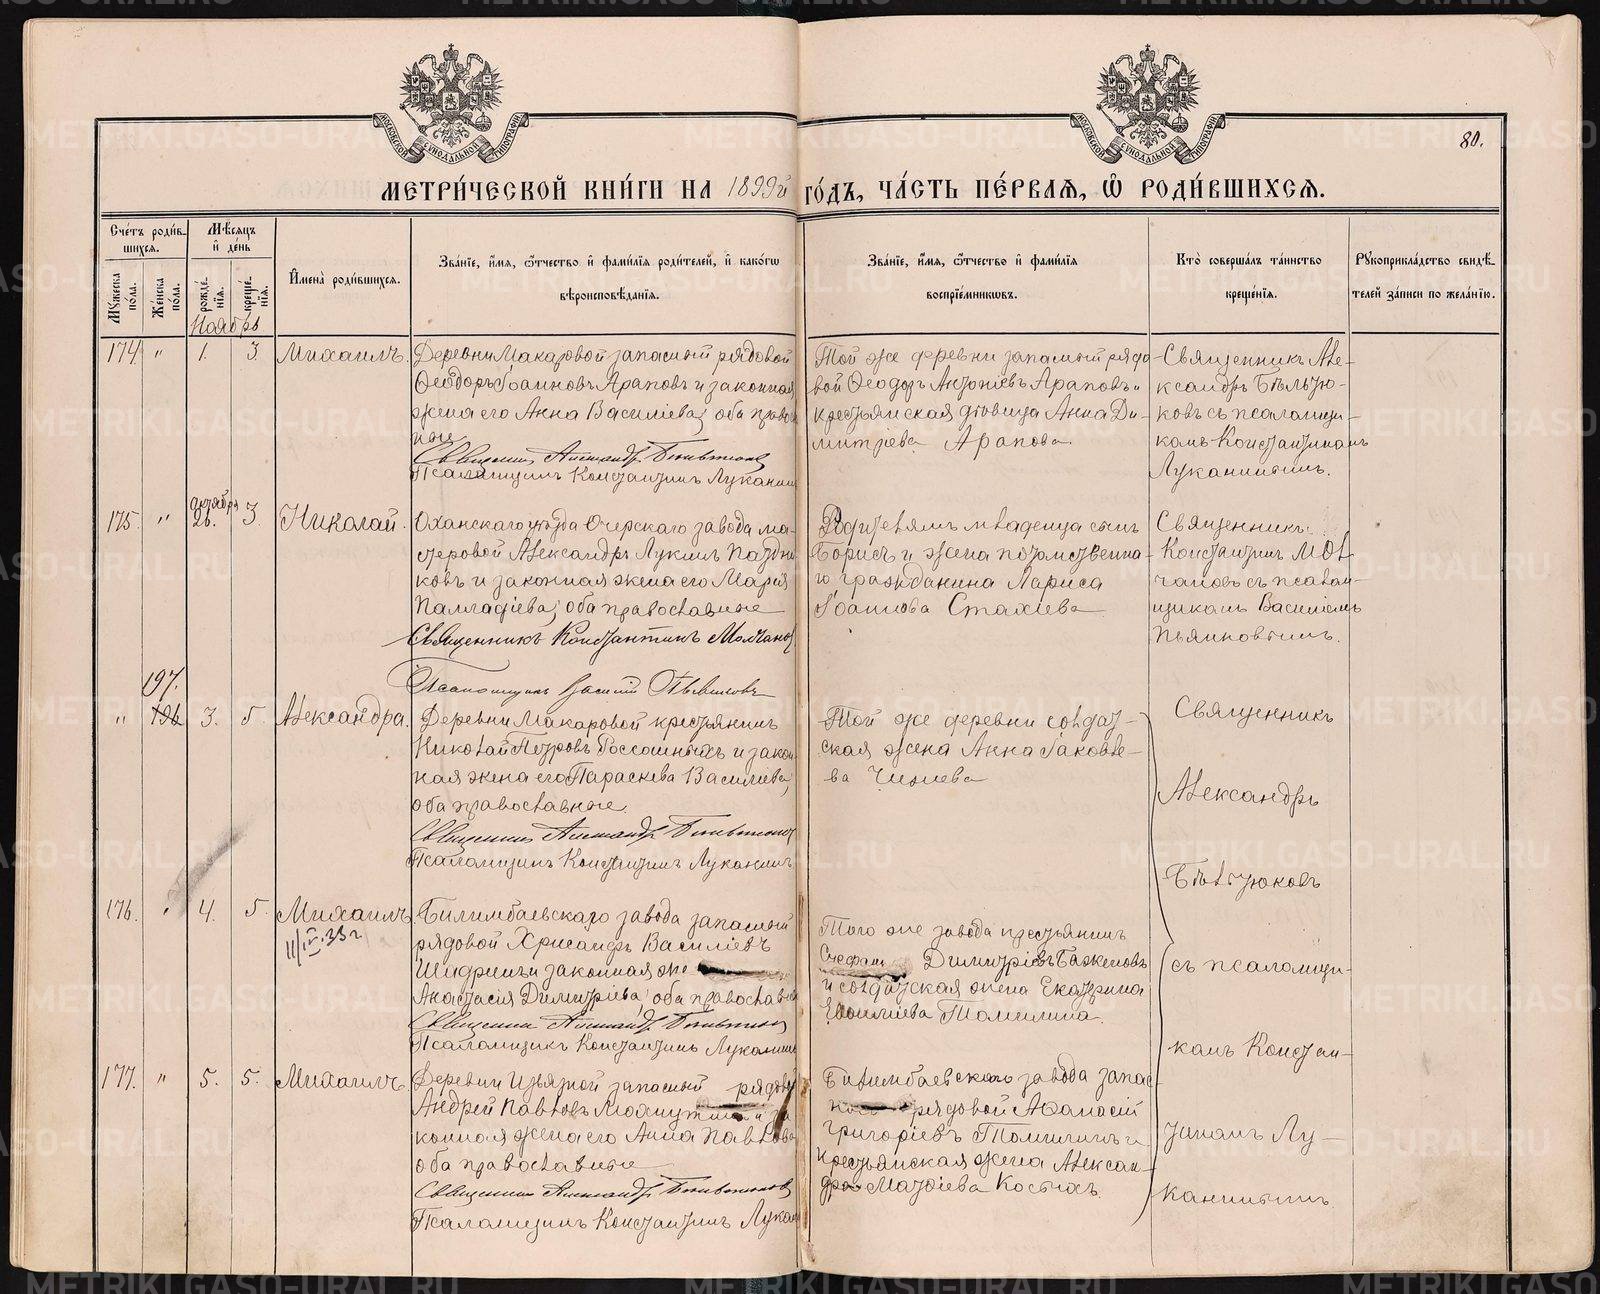 МОСКОВСКОЙ СѴНОДАЛЬНОЙ ТИПОГРАФІИ
МОСКОВСКОЙ СѴНОДАЛЬНОЙ ТИПОГРАФІИ
80.
МЕТРИ́ЧЕСКОЙ КНИ́ГИ НА 1899й ГО́ДЪ, ЧА́СТЬ ПЕ́РВАЯ, Ѽ РОДИ́ВШИХСЯ.
Сче́тъ роди́в-
шихся.
Мѣ́сяцъ
и҆ де́нь
Мꙋ́жеска по́ла.
Же́нска по́ла.
рожде́-нїя.
креще́-нїя.
И҆мена̀ роди́вшихся.
Зва́нїе, и҆́мя, ѻ҆́тчество и҆ фами́лїя роди́телей, и҆ како́гѡ
вѣроисповѣ́данїя.
Зва́нїе, и҆́мя, ѻ҆́тчество и҆ фами́лїя
воспрїе́мниковъ.
Кто̀ соверша́лъ та́инство
креще́нїя.
Рꙋкоприкла́дство свидѣ́-
телей за́писи по жела́нїю.
Ноябрь
174 " 1. 3. Михаилъ.
Деревни Макаровой запасный рядовой
Ѳеодоръ Іоанновъ Араповъ и законная
жена его Анна Василіева, оба право
ные
Священникъ Александръ Бѣльтюковъ
Псаломщикъ Константинъ Луканин
Той же деревни запасный рядо
вой Ѳеодоръ Антоніевъ Араповъ и
крестьянская дѣвица Анна Ди-
митріева Арапова
Священникъ Але-
ксандръ Бѣльтю-
ковъ съ псаломщи-
комъ Константиномъ
Луканинымъ.
175. " октября 26. 3. Николай.
Оханскаго уѣзда Очерскаго завода ма-
стеровой Александръ Лукинъ Поздня
ковъ и законная жена его Марія
Палладіева, оба православные
Священникъ Константинъ Молчанов
Псаломщикъ Василій
Родителямъ младенца сынъ
Борисъ и жена потомственна-
го гражданина Лариса
Іоаннова Стахіева
Священникъ
Константинъ Мол-
чановъ съ псалом-
щикомъ Василіемъ
Пьянковымъ.
197.
" 196 3. 5. Александра.
Деревни Макаровой крестьянинъ
Николай Петровъ Россошныхъ и закон
ная жена его Параскева Василіева,
оба православные
Священникъ Александръ Бѣльтюковъ
Псаломщикъ Константинъ Луканинъ
Той же деревни солдат-
ская жена Анна Іаковле-
ва
Священникъ
Александръ
Бѣльтюковъ
176. " 4. 5. Михаилъ
11/IV.33 г
Билимбаевскаго завода запасный
рядовой Хрисанфъ Василіевъ
Шидринъ и законная же
Анастасія Димитріева, оба православн
Священникъ Александръ Бѣльтюковъ
Псаломщикъ Константинъ Луканинъ
Того же завода крестьянинъ
Стефанъ Димитріевъ Баженовъ
и солдатская жена Екатерина
Василіева Томилина.
съ псаломщи-
комъ Констан-
177. " 5. 5. Михаилъ
Деревни Извязной запасный рядовой
Андрей Павловъ и за
конная жена его Анна Павлова
оба православные
Священникъ Александръ Бѣльтюковъ
Псаломщикъ Константинъ Лукан
Билимбаевскаго завода запас
ной рядовой Аѳанасій
Григоріевъ Томилинъ и
крестьянская жена Алексан-
дра Матѳіева Костыхъ.
тиномъ Лу-
канинымъ
METRIKI.GASO-URAL.RU